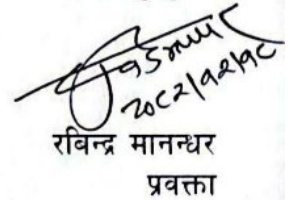 २०८२|१२|१८
रबिन्द्र मानन्धर
प्रवक्ता